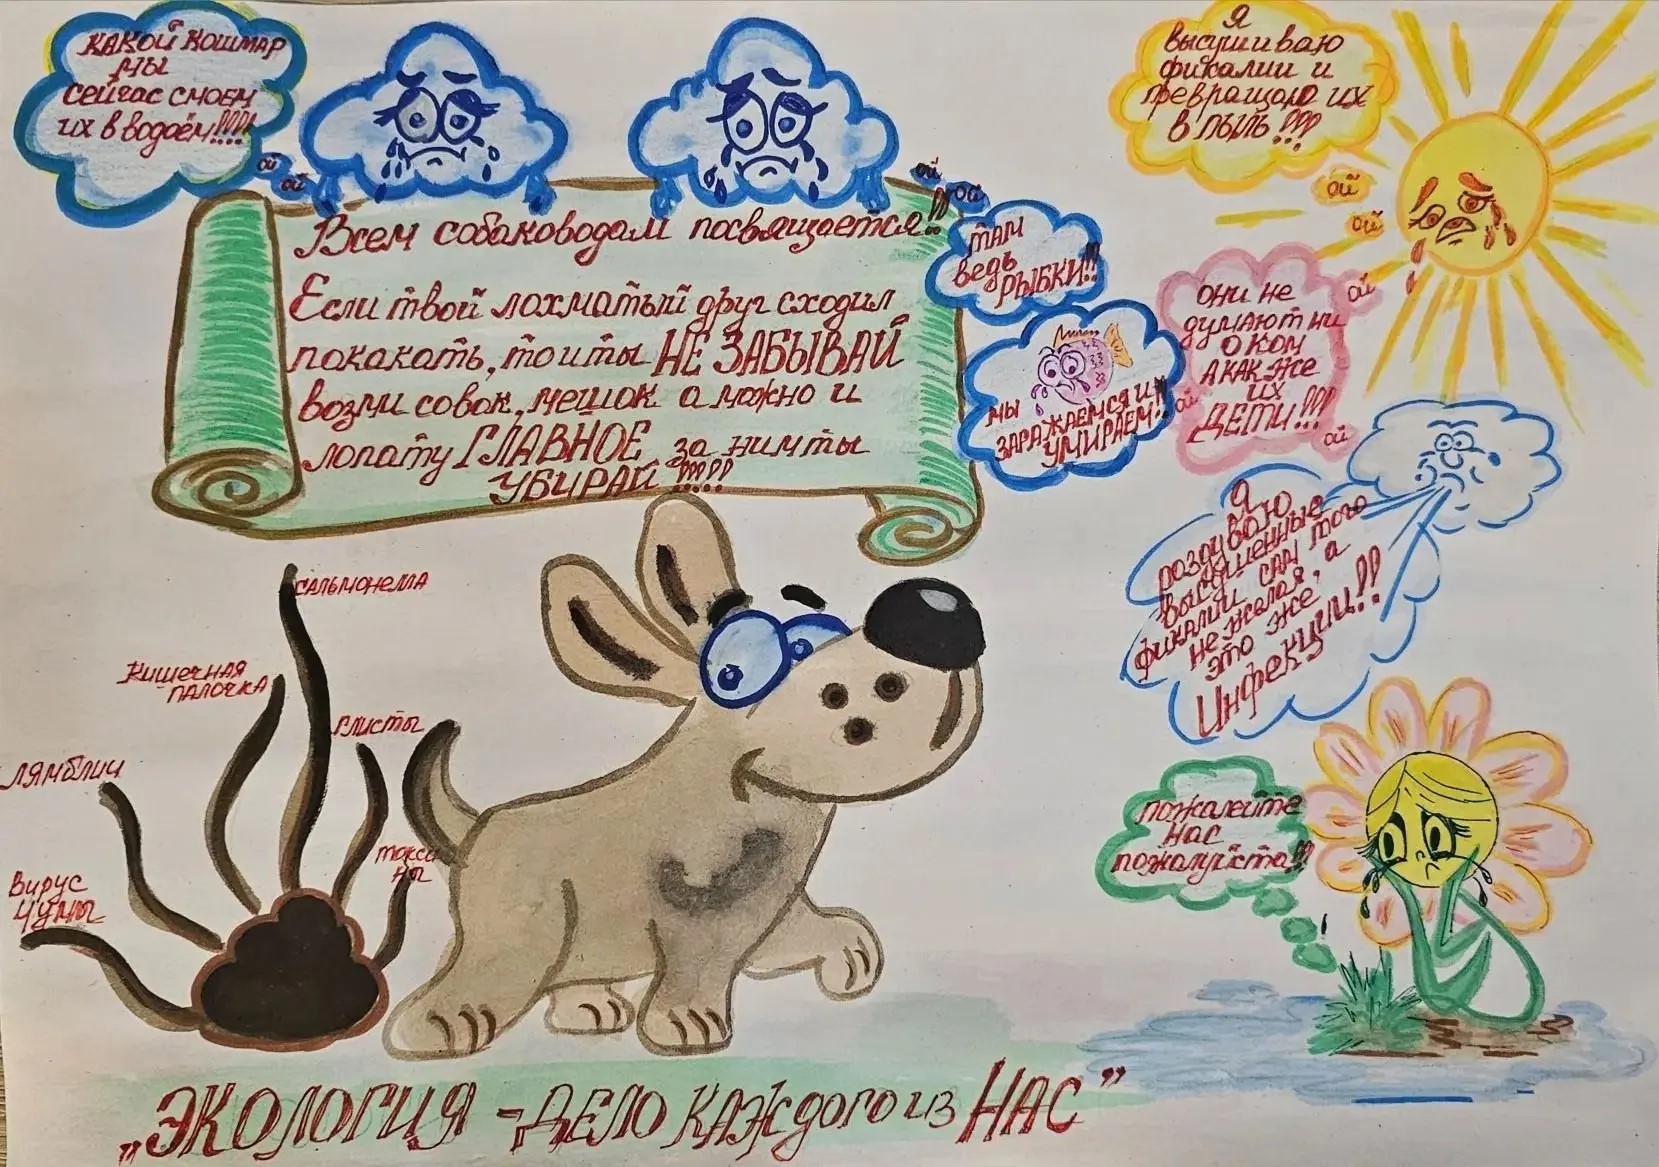 КАКОЙ КОШМАР
МЫ
СЕЙЧАС СМОЕМ
ИХ В ВОДОЁМ!!!!
ОЙ
ОЙ
Всем собаководам посвящается!!
Если твой лохматый друг сходил
покакать, то и ты НЕ ЗАБЫВАЙ
возми совок, мешок а можно и
лопату ГЛАВНОЕ за ним ты
УБИРАЙ!!!!!
ОЙ
ОЙ
ТАМ
ведь
РЫБКИ!!!
МЫ
ЗАРАЖАЕМСЯ И
УМИРАЕМ!!
Я
высушиваю
фикалии и
превращаю их
в пыль!!!
ОЙ
ОЙ
ОЙ
ОНИ НЕ
ДУМАЮТ НИ
О КОМ
А КАК ЖЕ
ИХ
ДЕТИ!!!
ОЙ
ОЙ
Я
раздуваю
высушенные
фикалии сам того
не желая, а
это же
Инфекции!!!
пожалейте
нас
пожалуйста!!!
САЛЬМОНЕЛЛА
КИШЕЧНАЯ
ПАЛОЧКА
ГЛИСТЫ
ЛЯМБЛИИ
ТОКСИ
НЫ
ВИРУС
ЧУМЫ
„ЭКОЛОГИЯ - ДЕЛО КАЖДОГО ИЗ НАС”